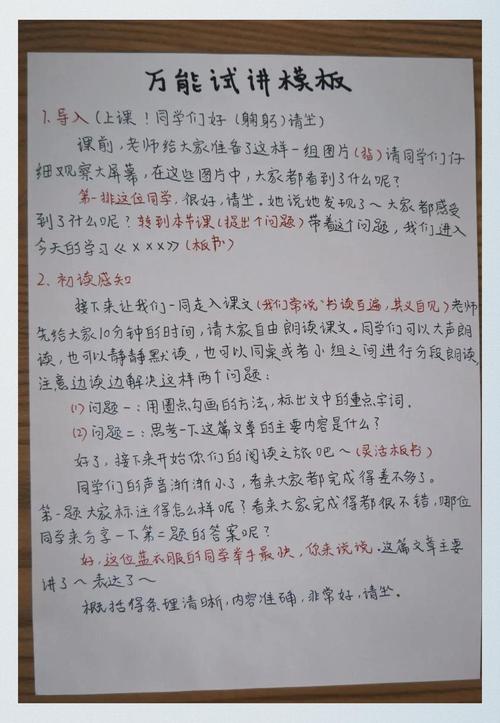 万能试讲模板
1.导入(上课!同学们好(鞠躬)请坐)
课前,老师给大家准备了这样一组图片(指)请同学们仔
细观察大屏幕,在这些图片中,大家都看到了什么呢?
第一排这位同学,很好,请坐。她说她发现了~大家都感受
到了什么呢?转到本节课(提出个问题)带着这个问题,我们进入
今天的学习《×××》(板书)
2.初读感知
接下来让我们一同走入课文(我们常说"书读百遍,其义自见)老师
先给大家10分钟的时间,请大家自由朗读课文。同学们可以大声朗
读,也可以静静默读,也可以同桌或者小组之间进行分段朗读,
注意边读边解决这样两个问题:
(1)问题一:用圈点勾画的方法,标出文中的重点字词.
(2)问题二:思考一下这篇文章的主要内容是什么?
好了,接下来开始你们的阅读之旅吧~(灵活板书)
同学们的声音渐渐小了,看来大家都完成得差不多了。
第一题大家标注得怎么样呢?看来大家完成得都很不错,哪位
同学来分享一下第二题的答案呢?
好,这位蓝衣服的同学举手最快,你来说说.这篇文章主要
讲了~表达了~
概括得条理清晰,内容准确,非常好,请坐.